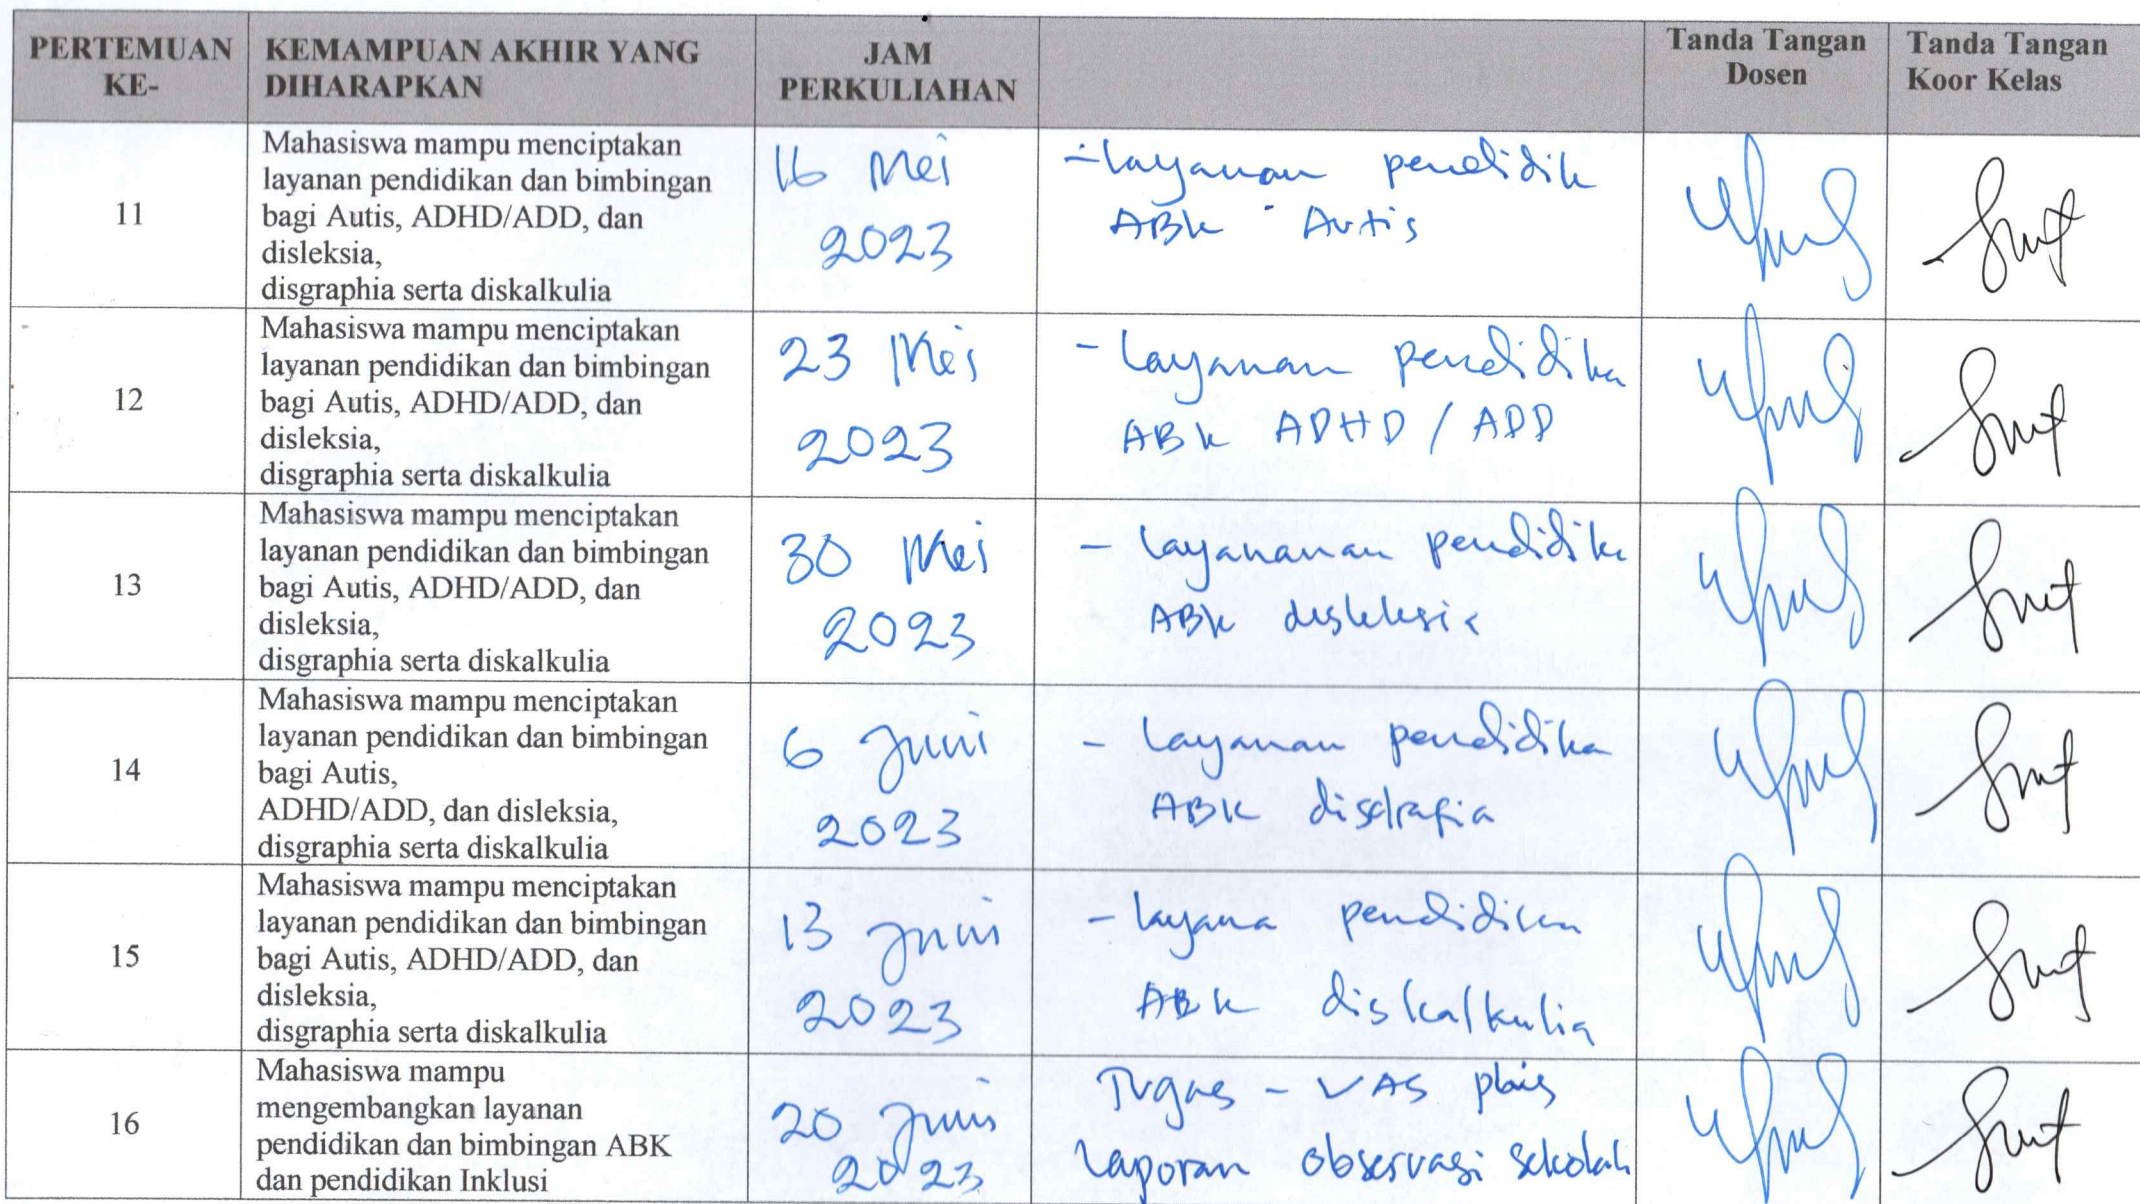 PERTEMUAN KE-
KEMAMPUAN AKHIR YANG DIHARAPKAN
JAM PERKULIAHAN
Tanda Tangan Dosen
Tanda Tangan Koor Kelas
11
Mahasiswa mampu menciptakan
layanan pendidikan dan bimbingan
bagi Autis, ADHD/ADD, dan
disleksia,
disgraphia serta diskalkulia
16 Mei
2023
- layanan pendidik
ABK Autis
12
Mahasiswa mampu menciptakan
layanan pendidikan dan bimbingan
bagi Autis, ADHD/ADD, dan
disleksia,
disgraphia serta diskalkulia
23 Mei
2023
- Layanan pendidika
ABK ADHD / ADD
13
Mahasiswa mampu menciptakan
layanan pendidikan dan bimbingan
bagi Autis, ADHD/ADD, dan
disleksia,
disgraphia serta diskalkulia
30 Mei
2023
- layananan pendidika
ABK disleksia
14
Mahasiswa mampu menciptakan
layanan pendidikan dan bimbingan
bagi Autis,
ADHD/ADD, dan disleksia,
disgraphia serta diskalkulia
6 Juni
2023
- layanan pendidika
ABK disgrafia
15
Mahasiswa mampu menciptakan
layanan pendidikan dan bimbingan
bagi Autis, ADHD/ADD, dan
disleksia,
disgraphia serta diskalkulia
13 Juni
2023
- layana pendidikan
ABK diskalkulia
16
Mahasiswa mampu
mengembangkan layanan
pendidikan dan bimbingan ABK
dan pendidikan Inklusi
20 Juni
2023
Tugas - UAS
Laporan observasi sekolah